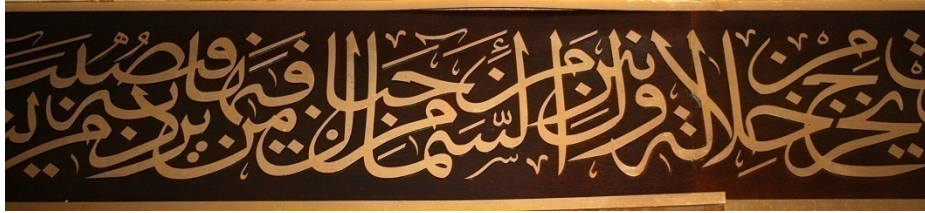 يخرج من خلاله وينزل من السماء من جبال فيها من برد فيصيب به من